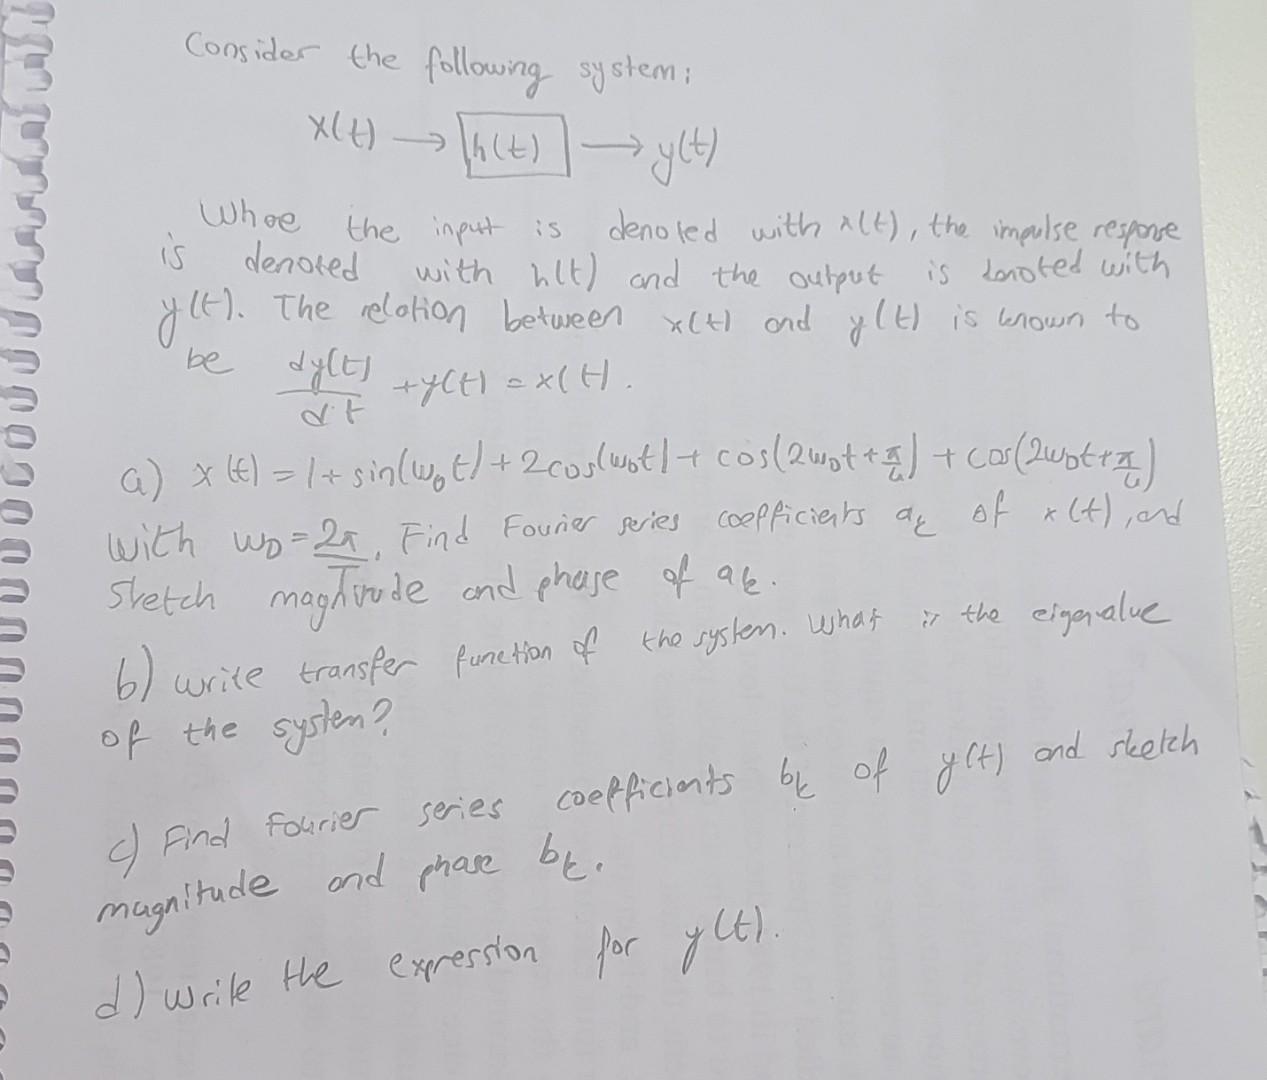 Consider the following system;
x(t) → h(t) → y(t)
Whoe the input is denoted with x(t), the impulse response
is denoted with h(t) and the output is denoted with
y(t). The relation between x(t) and y(t) is known to
be dy(t)/dt + y(t) = x(t).
a) x(t) = 1 + sin(w₀t) + 2cos(w₀t) + cos(2w₀t + π/4) + cos(2w₀t + π/4)
with w₀ = 2π/T. Find Fourier series coefficients aₖ of x(t), and
sketch magnitude and phase of aₖ.
b) write transfer function of the system. What is the eigenvalue
of the system?
c) Find Fourier series coefficients bₖ of y(t) and sketch
magnitude and phase bₖ.
d) write the expression for y(t).